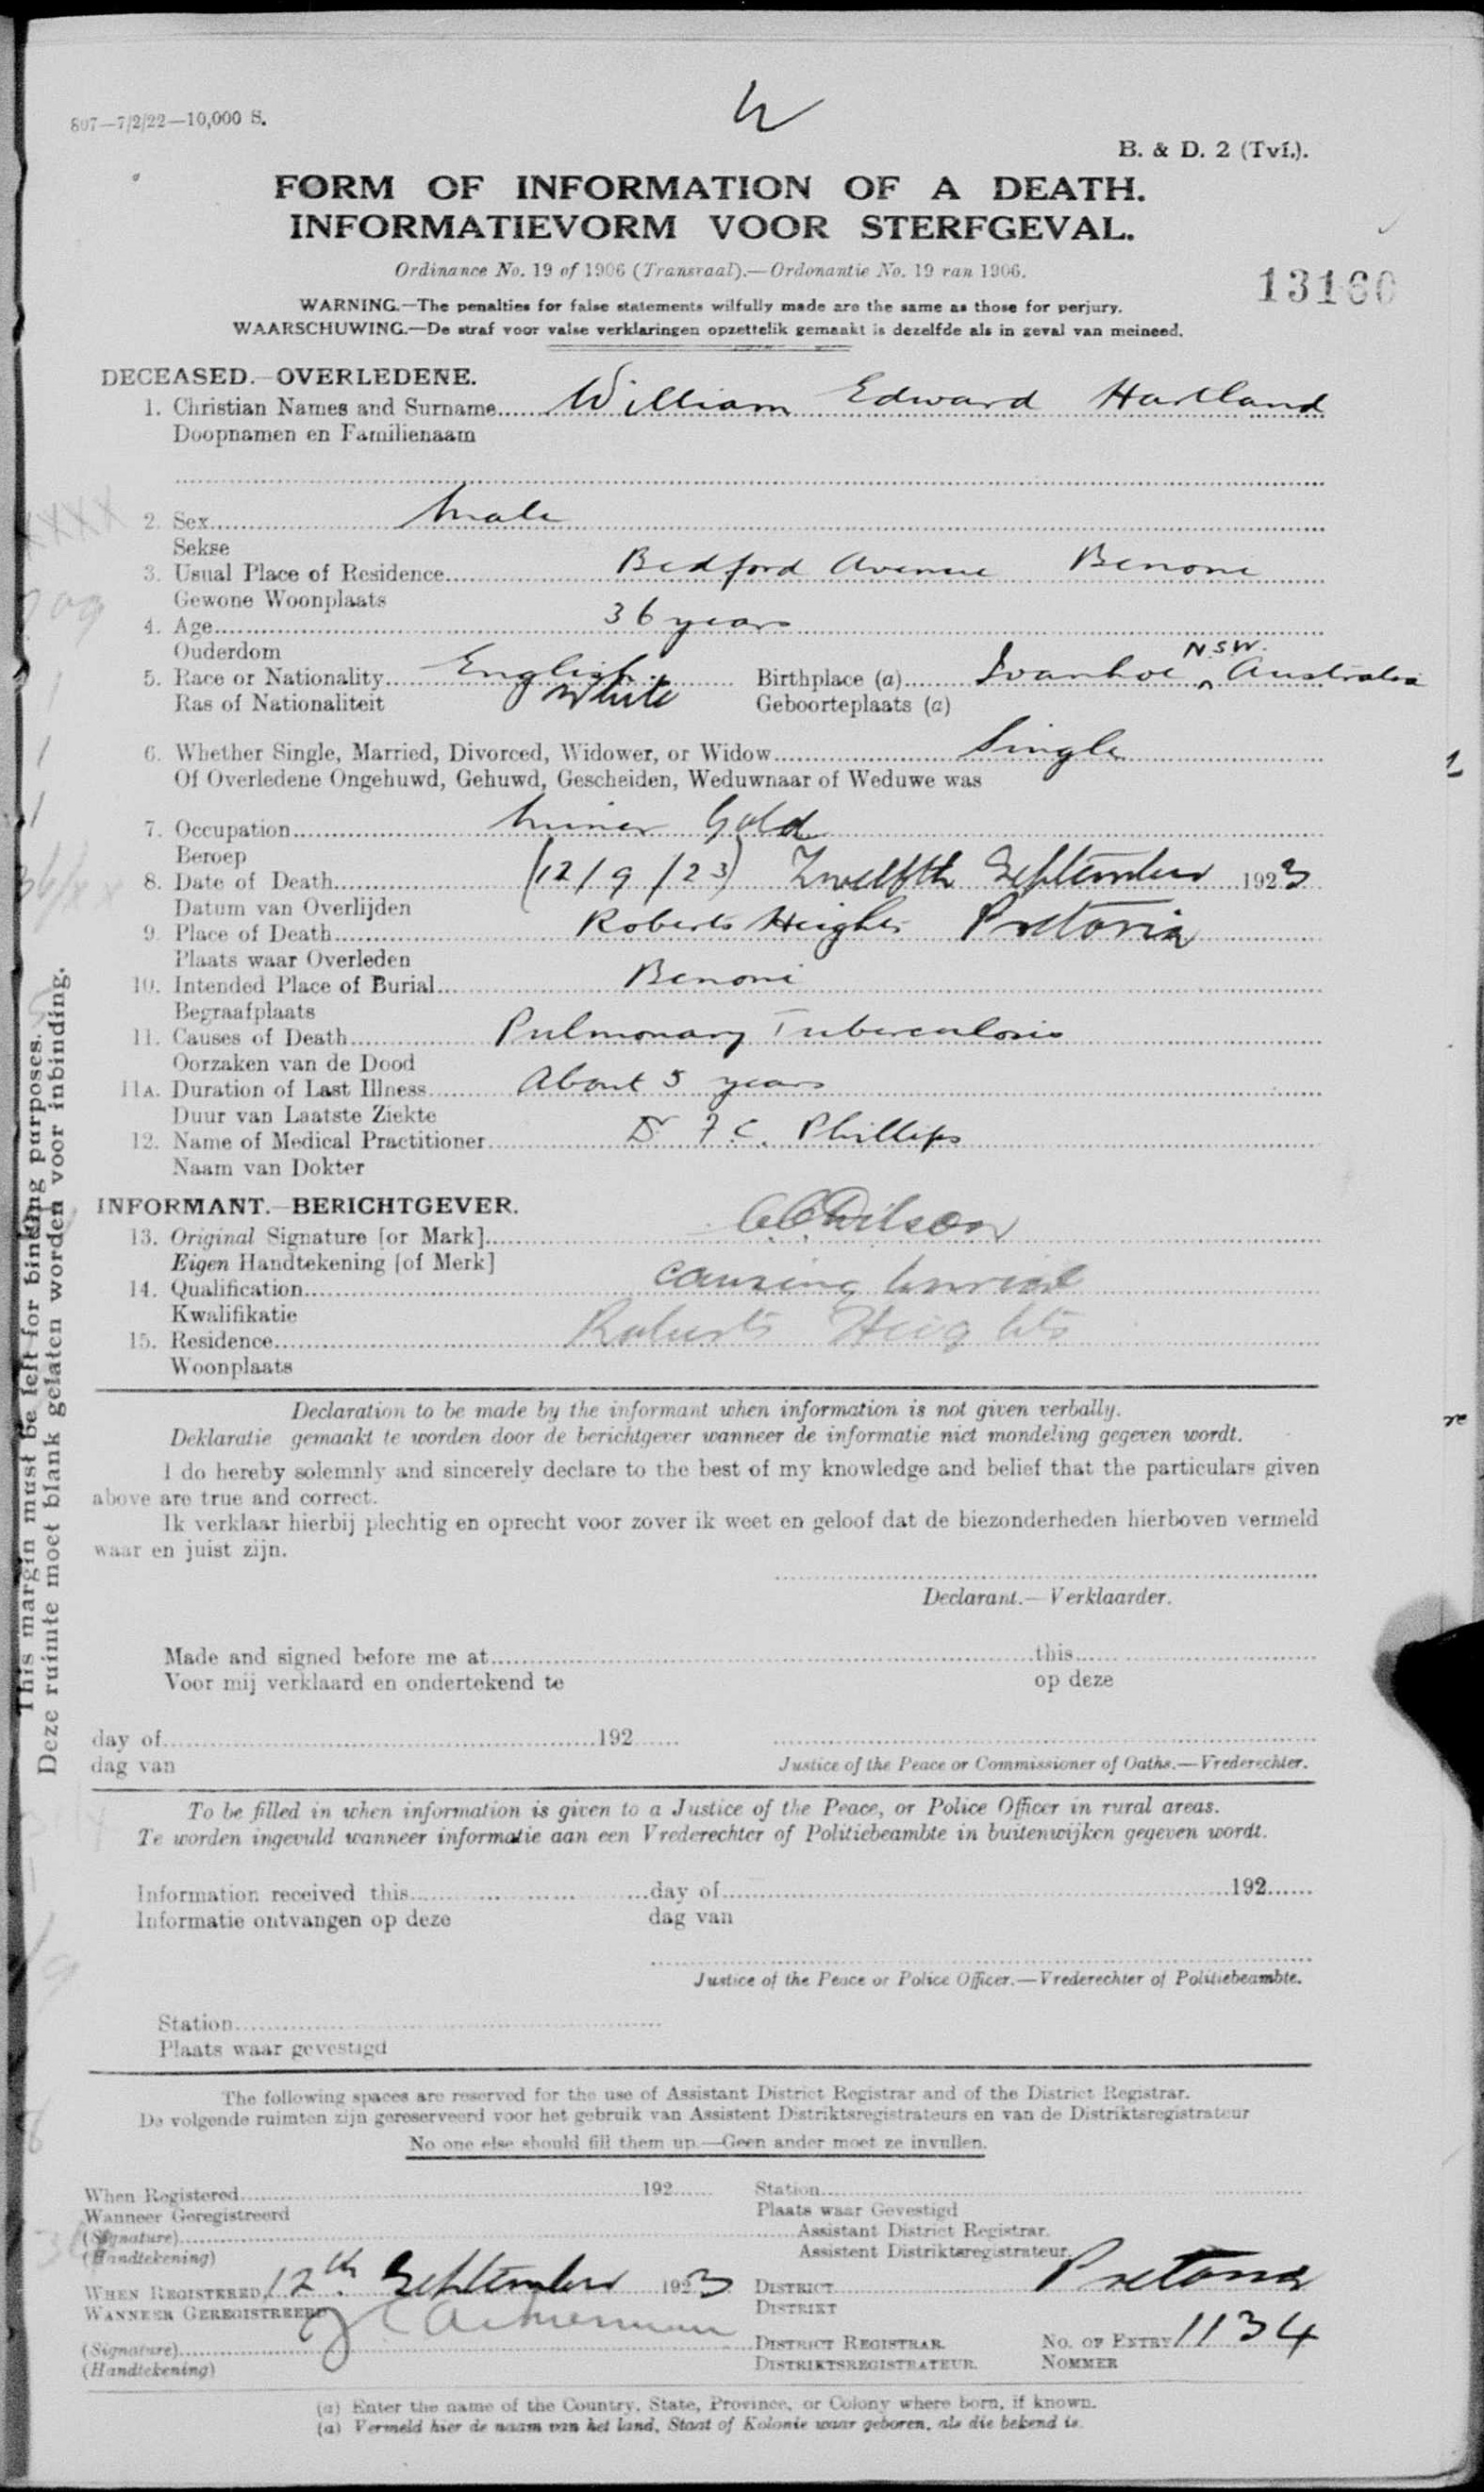 807—7/2/22—10,000 S.
B. & D. 2 (Tvl.).
FORM OF INFORMATION OF A DEATH.
INFORMATIEVORM VOOR STERFGEVAL.
Ordinance No. 19 of 1906 (Transvaal).—Ordonantie No. 19 van 1906.
13160
WARNING.—The penalties for false statements wilfully made are the same as those for perjury.
WAARSCHUWING.—De straf voor valse verklaringen opzettelik gemaakt is dezelfde als in geval van meineed.
DECEASED.—OVERLEDENE.
1. Christian Names and Surname William Edward Hartland
Doopnamen en Familienaam
2. Sex Male
Sekse
3. Usual Place of Residence Bedford Avenue Benoni
Gewone Woonplaats
4. Age 36 years
Ouderdom
5. Race or Nationality English White Birthplace (a) Ivanhoe N.S.W. Australia
Ras of Nationaliteit Geboorteplaats (a)
6. Whether Single, Married, Divorced, Widower, or Widow Single
Of Overledene Ongehuwd, Gehuwd, Gescheiden, Weduwnaar of Weduwe was
7. Occupation Miner Gold
Beroep
8. Date of Death (12/9/23) Twelfth September 1923
Datum van Overlijden
9. Place of Death Roberts Heights Pretoria
Plaats waar Overleden
10. Intended Place of Burial Benoni
Begraafplaats
11. Causes of Death Pulmonary Tuberculosis
Oorzaken van de Dood
11A. Duration of Last Illness About 5 years
Duur van Laatste Ziekte
12. Name of Medical Practitioner Dr F. C. Phillips
Naam van Dokter
INFORMANT.—BERICHTGEVER.
13. Original Signature [or Mark] Wilson
Eigen Handtekening [of Merk]
14. Qualification causing burial
Kwalifikatie
15. Residence Roberts Heights
Woonplaats
Declaration to be made by the informant when information is not given verbally.
Deklaratie gemaakt te worden door de berichtgever wanneer de informatie niet mondeling gegeven wordt.
I do hereby solemnly and sincerely declare to the best of my knowledge and belief that the particulars given
above are true and correct.
Ik verklaar hierbij plechtig en oprecht voor zover ik weet en geloof dat de biezonderheden hierboven vermeld
waar en juist zijn.
Declarant.—Verklaarder.
Made and signed before me at this
Voor mij verklaard en ondertekend te op deze
day of 192
dag van Justice of the Peace or Commissioner of Oaths.—Vrederechter.
To be filled in when information is given to a Justice of the Peace, or Police Officer in rural areas.
Te worden ingevuld wanneer informatie aan een Vrederechter of Politiebeambte in buitenwijken gegeven wordt.
Information received this day of 192
Informatie ontvangen op deze dag van
Justice of the Peace or Police Officer.—Vrederechter of Politiebeambte.
Station
Plaats waar gevestigd
The following spaces are reserved for the use of Assistant District Registrar and of the District Registrar.
De volgende ruimten zijn gereserveerd voor het gebruik van Assistent Distriktsregistrateurs en van de Distriktsregistrateur
No one else should fill them up.—Geen ander moet ze invullen.
When Registered 192 Station
Wanneer Geregistreerd Plaats waar Gevestigd
(Signature) Assistant District Registrar.
(Handtekening) Assistent Distriktsregistrateur.
WHEN REGISTERED 12th September 1923 DISTRICT Pretoria
WANNEER GEREGISTREERD DISTRIKT
(Signature) DISTRICT REGISTRAR. NO. OF ENTRY 1134
(Handtekening) DISTRIKTSREGISTRATEUR. NOMMER
(a) Enter the name of the Country, State, Province, or Colony where born, if known.
(a) Vermeld hier de naam van het land, Staat of Kolonie waar geboren, als die bekend is.
This margin must be left for binding purposes.
Deze ruimte moet blank gelaten worden voor inbinding.